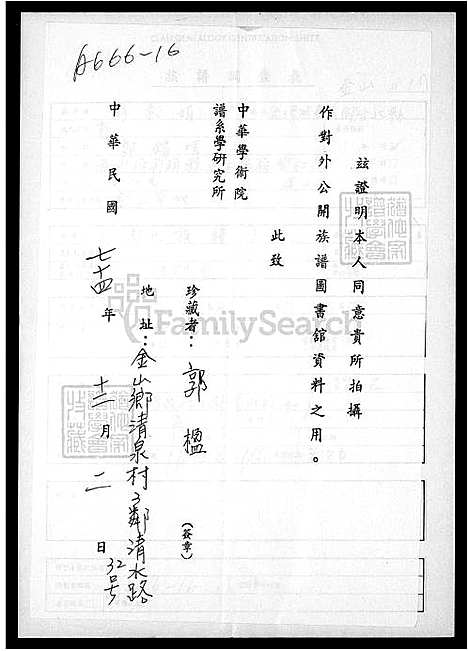 A666-16
茲證明本人同意貴所拍攝
作對外公開族譜圖書舘資料之用。
此致
中華學術院
譜系學研究所
珍藏者：郭楹
(簽章)
地址：金山鄉清泉村3鄰清水路32号
中華民國七十四年十二月二日
FamilySearch